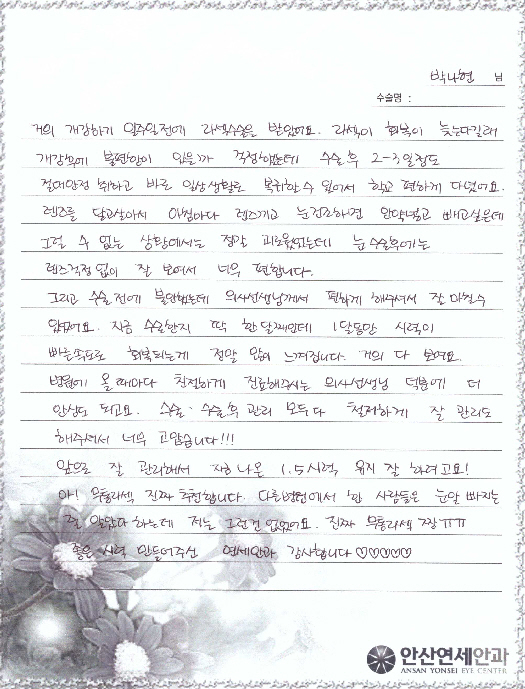 박나현 님
수술명 :
거의 개강하기 일주일전에 라섹수술을 받았어요. 라섹이 회복이 늦는다길래
개강후에 불편함이 있을까 걱정했는데 수술후 2-3일정도
절대안정 취하고 바로 일상생활로 복귀할수 있어서 학교 편하게 다녔어요.
렌즈를 달고살아서 아침마다 렌즈끼고 눈건조하면 안약넣고 빼고싶은데
그럴 수 없는 상황에서는 정말 괴로웠었는데 눈수술후에는
렌즈걱정없이 잘 보여서 너무 편합니다.
그리고 수술전에 불안했는데 의사선생님께서 편하게 해주셔서 잘 마칠수
있었어요. 지금 수술한지 딱 한달째인데 1달동안 시력이
빠른속도로 회복되는게 정말 많이 느껴집니다. 거의 다 보여요.
병원에 올때마다 친절하게 진료해주시는 의사선생님 덕분에 더
안심도 되고요. 수술·수술후 관리 모두다 철저하게 잘 관리도
해주셔서 너무 고맙습니다!!!
앞으로 잘 관리해서 지금 나온 1.5시력 유지 잘 하려고요!
아! 무통라섹 진짜 추천합니다. 다른병원에서 한 사람들은 눈알 빠지는
줄 알았다 하는데 저는 그런건 없었어요. 진짜 무통라섹 짱ㅠㅠ
좋은 시력 만들어주신 연세안과 감사합니다♡♡♡♡♡
안산연세안과
ANSAN YONSEI EYE CENTER